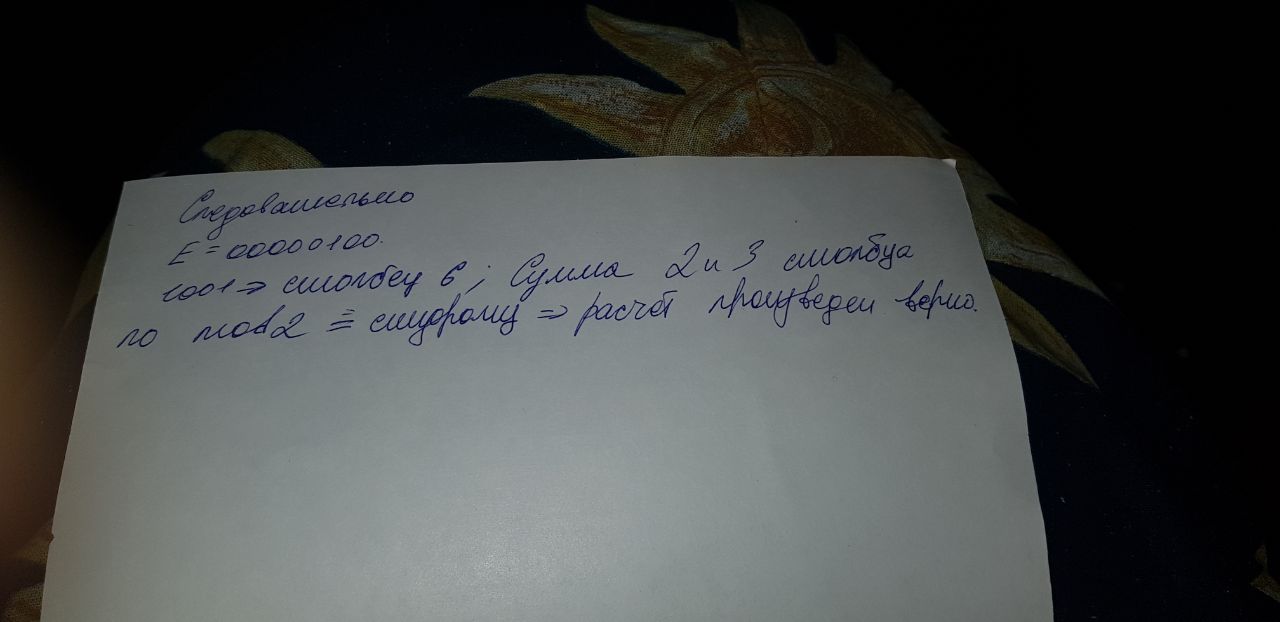 Следовательно
E = 00000100.
1001 => столбец 6; Сумма 2 и 3 столбца
по mod2 ≡ синдрому => расчёт произведен верно.